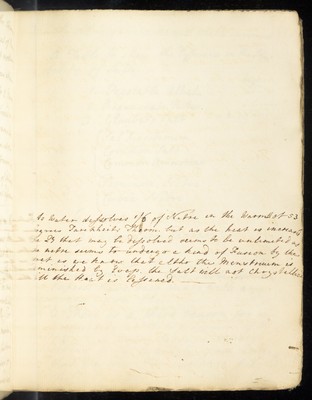 as water dissolves 1/6 of Nitre in the warmth of 53
Farinheits Therm. but as the heat is increased
that may be dissolved seems to be unlimited as
nitre seems to undergo a kind of Fusion by the
as we know that altho the Menstruum is
diminished by Evap. the salt will not Chrystallise
till the Heat is lessened.